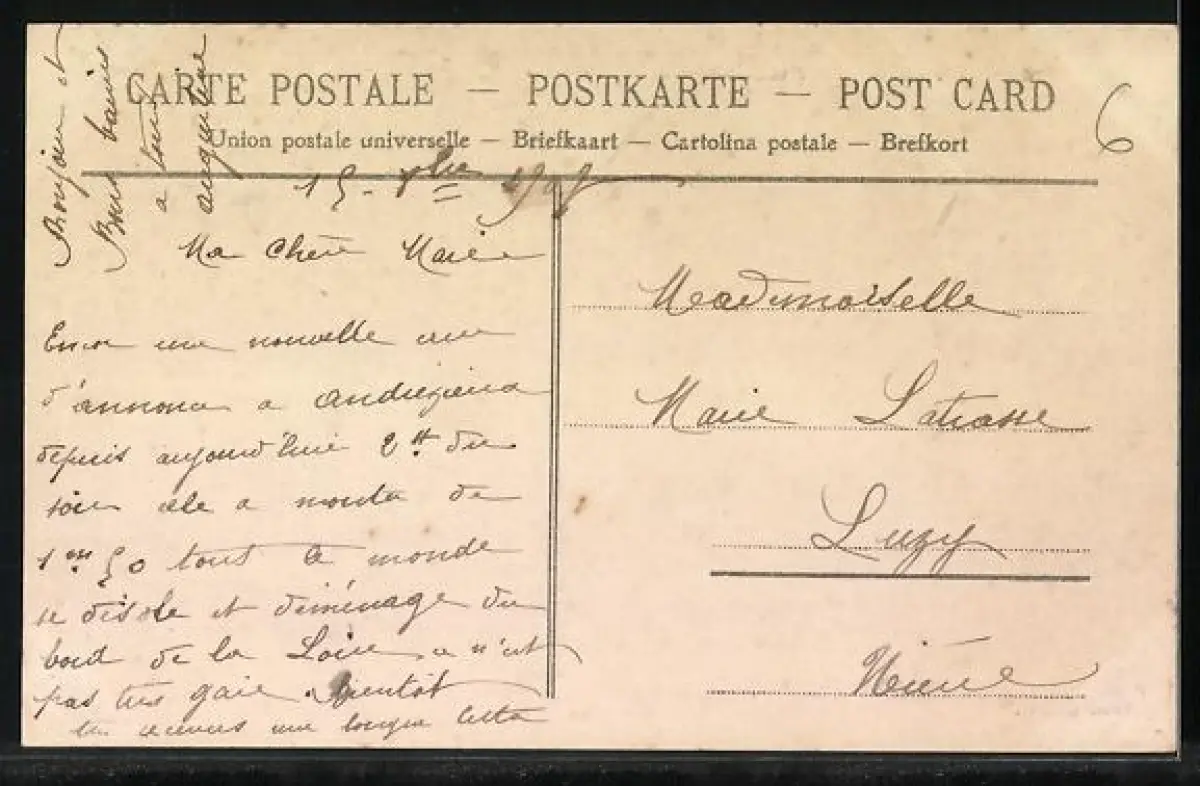 CARTE POSTALE — POSTKARTE — POST CARD
Union postale universelle — Briefkaart — Cartolina postale — Brefkort
6
Bonjour et
Bons baisers
a tous
15 - 8bre
Ma chère Marie
une nouvelle crue
d'annoncer a andrezieux
depuis aujourd'hui 2 h du
soir elle a monta de
1 m 50 tout le monde
se désole et déménage du
bord de la Loire, ce n'est
pas tres gaie. Bientôt
tu recevras une longue lettre
Mademoiselle
Marie Latrasse
Luzy
Nièvre